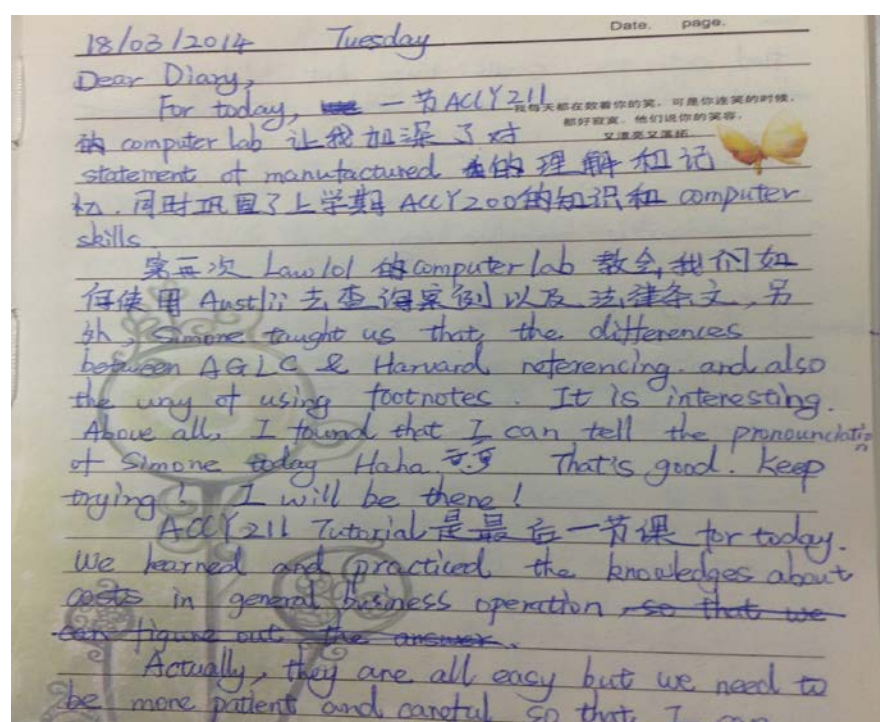 Date. page.
18/03/2014 Tuesday
Dear Diary,
For today, 一节 ACCY211
我每天都在数着你的笑,可是你连笑的时候,
都好寂寞。他们说你的笑容,
又漂亮又落拓
的 computer lab 让我加深了对
statement of manufactured 的理解和记
忆.同时巩固了上学期 ACCY200的知识和 computer
skills.
第二次 Law101 的 computer lab 教会我们如
何使用 Austlii 去查询案例以及法律条文,另
外, Simone taught us that the differences
between AGLC & Harvard referencing. and also
the way of using footnotes. It is interesting.
Above all, I found that I can tell the pronounciation
of Simone today Haha. That's good. Keep
trying! I will be there!
ACCY211 Tutorial 是最后一节课 for today.
We learned and practiced the knowledges about
costs in general business operation so that we
can figure out the answer.
Actually, they are all easy but we need to
be more patient and careful so that I can